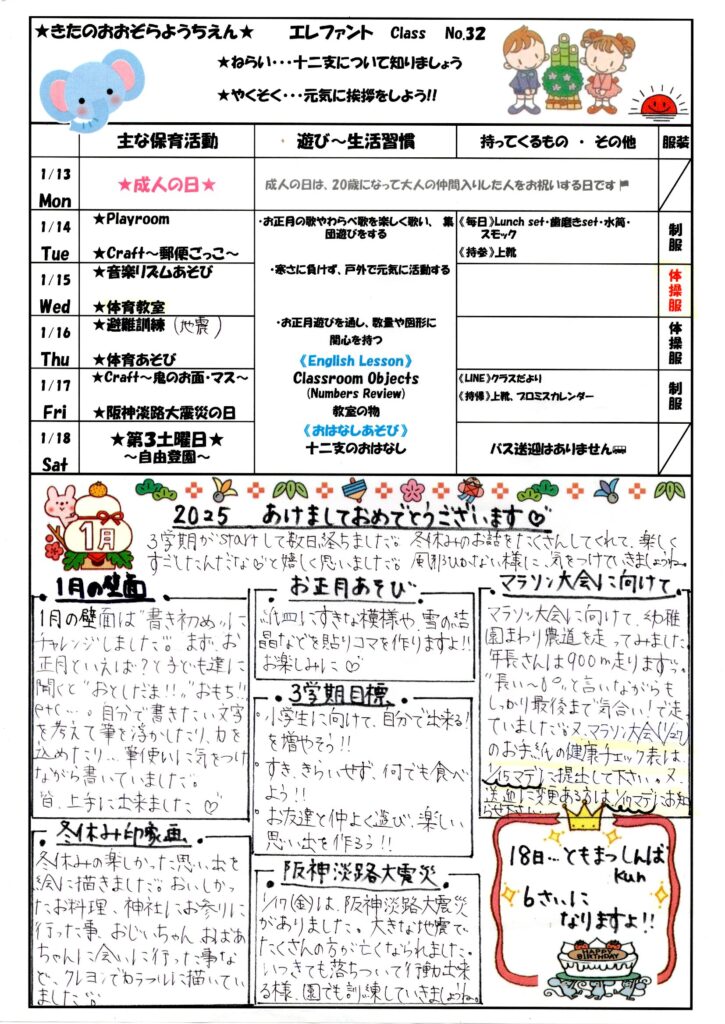 ★きたのおおぞらようちえん★ エレファント Class No.32
★ねらい・・・十二支について知りましょう
★やくそく・・・元気に挨拶をしよう!!
主な保育活動 遊び～生活習慣 持ってくるもの ・ その他 服装
1/13 Mon ★成人の日★ 成人の日は、20歳になって大人の仲間入りした人をお祝いする日です
1/14 Tue ★Playroom ・お正月の歌やわらべ歌を楽しく歌い、集団遊びをする 《毎日》Lunch set・歯磨きset・水筒・スモック 制服
★Craft～郵便ごっこ～ 《持参》上靴
1/15 Wed ★音楽リズムあそび ・寒さに負けず、戸外で元気に活動する 体操服
★体育教室
1/16 Thu ★避難訓練(地震) ・お正月遊びを通し、数量や図形に関心を持つ 体操服
★体育あそび 《English Lesson》
1/17 Fri ★Craft～鬼のお面・マス～ Classroom Objects 《LINE》クラスだより 制服
(Numbers Review) 《持帰》上靴、プロミスカレンダー
★阪神淡路大震災の日 教室の物
1/18 Sat ★第3土曜日★ 《おはなしあそび》 バス送迎はありません
～自由登園～ 十二支のおはなし
1月
2025 あけましておめでとうございます♡
3学期がstartして数日経ちました。冬休みのお話をたくさんしてくれて、楽しく
すごしたんだな♡と嬉しく思いました。風邪ひかない様に、気をつけていきましょうね。
1月の壁面
1月の壁面は"書き初め"に
チャレンジしました。まず、お
正月といえば?と子ども達に
聞くと"おとしだま!!""おもち!!"
etc…。自分で書きたい文字
を考えて筆を浮かしたり、力を
込めたり…筆使いに気をつけ
ながら書いていました。
皆、上手に出来ました♡
冬休み印象画
冬休みの楽しかった思い出を
絵に描きました。おいしかっ
たお料理、神社にお参りに
行った事、おじいちゃん、おばあ
ちゃんに会いに行った事な
ど、クレヨンでカラフルに描いてい
ました。
お正月あそび
紙皿にすきな模様や、雪の結
晶などを貼りコマを作りますよ!!
お楽しみに♡
3学期目標
・小学生に向けて、自分で出来る!
を増やそう!!
・すき、きらいせず、何でも食べ
よう!!
・お友達と仲よく遊び、楽しい
思い出を作ろう!!
阪神淡路大震災
1/17(金)は、阪神淡路大震災
がありました。大きな地震で
たくさんの方が亡くなられました。
いつきても落ちついて行動出来
る様、園でも訓練していきましょうね。
マラソン大会に向けて
マラソン大会に向けて、幼稚
園まわり農道を走ってみました
年長さんは900m走ります。
"長い～"と言いながらも
しっかり最後まで"気合い!"で走っ
ていました。又、マラソン大会(1/27)
のお手紙の健康チェック表は、
1/15マデに提出して下さい。又、
送迎に変更ある方は1/17マデにお知
らせ下さい。
18日…ともまつしんば
Kun
6さいに
なりますよ!!
HAPPY BIRTHDAY